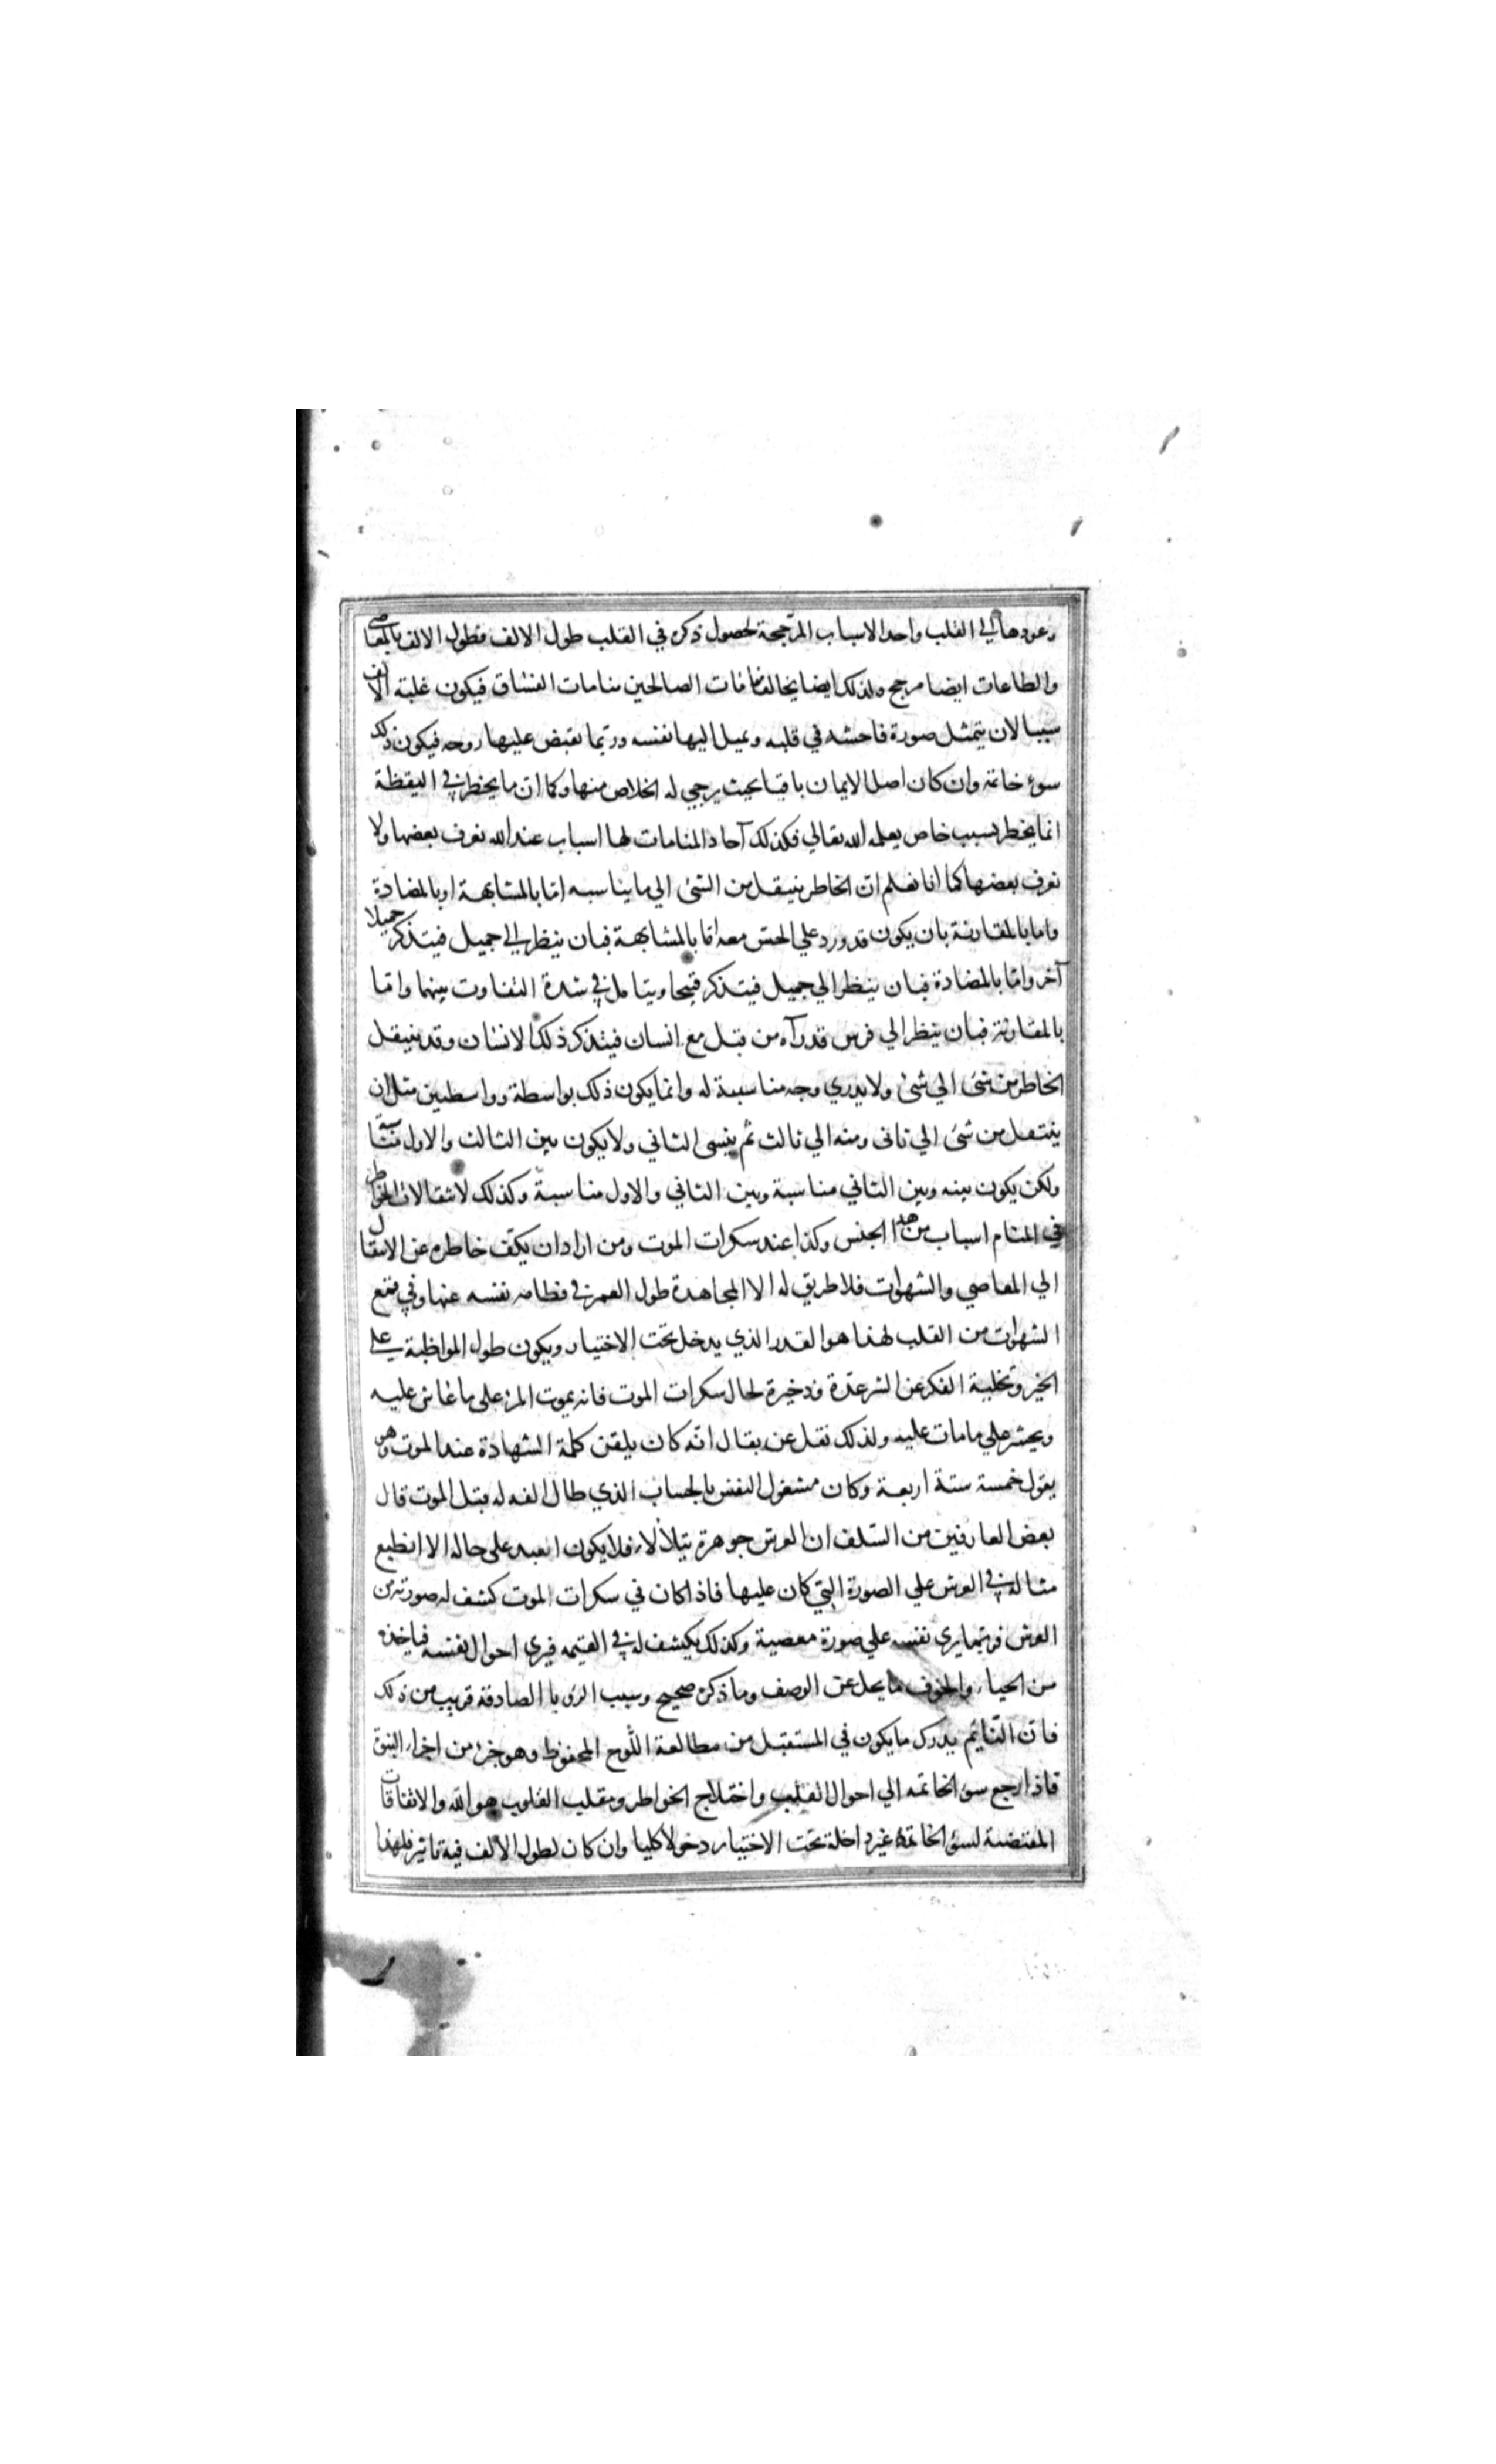 وعودها الى القلب واحد الاسباب المرجحة لحصول ذكره في القلب طول الالف فطول الالف بالمعاصي
والطاعات ايضا مرجح ولذلك ايضا يخالف منامات الصالحين منامات الفساق فيكون غلبة الالف
سببا لان يتمثل صورة فاحشه في قلبه ويميل اليها نفسه وربما يقبض عليها روحه فيكون ذلك
سوء خاتمة وان كان اصل الايمان باقيا بحيث يرجي له الخلاص منها وكما ان ما يخطر في اليقظة
انما يخطر بسبب خاص يعلمه الله تعالي فكذلك آحاد المنامات لها اسباب عند الله نعرف بعضها ولا
نعرف بعضها كما انا نعلم ان الخاطر ينتقل من الشئ الي ما يناسبه اما بالمشابهة او بالمضادة
واما بالمقارنة بان يكون قد ورد علي الحس معه اما بالمشابهة فبان ينظر الي جميل فيتذكر جميلا
آخر واما بالمضادة فبان ينظر الي جميل فيتذكر قبيحا ويتامل في شدة التفاوت بينهما واما
بالمقارنة فبان ينظر الي فرس قد رآه من قبل مع انسان فيتذكر ذلك الانسان وقد ينتقل
الخاطر من شئ الي شئ ولا يدري وجه مناسبة له وانما يكون ذلك بواسطة وواسطتين مثل ان
ينتقل من شئ الي ثانى ومنه الي ثالث ثم ينسى الثاني ولا يكون بين الثالث والاول مناسبة
ولكن يكون بينه وبين الثاني مناسبة وبين الثاني والاول مناسبة وكذلك لانتقالات الخواطر
في المنام اسباب من هذا الجنس وكذا عند سكرات الموت ومن اراد ان يكف خاطره عن الانتقال
الي المعاصي والشهوات فلا طريق له الا المجاهدة طول العمر في فطامه نفسه عنها وفي قمع
الشهوات من القلب فهذا هو القدر الذي يدخل تحت الاختيار ويكون طول المواظبة على
الخير وتخلية الفكر عن الشر عدة وذخيرة لحال سكرات الموت فانه يموت المرء على ما عاش عليه
ويحشر علي ما مات عليه ولذلك نقل عن بقال انه كان يلقن كلمة الشهادة عند الموت وهو
يقول خمسة ستة اربعة وكان مشغول النفس بالحساب الذي طال الفه له قبل الموت قال
بعض العارفين من السلف ان العرش جوهرة يتلألاء فلا يكون العبد على حالة الا انطبع
مثاله في العرش علي الصورة التي كان عليها فاذا كان في سكرات الموت كشف له صورته من
العرش فربما يرى نفسه علي صورة معصية وكذلك يكشف له في القيمه فيرى احوال نفسه فياخذه
من الحياء والخوف ما يجل عن الوصف وما ذكره صحيح وسبب الرؤيا الصادقة قريب من ذلك
فان النايم يدرك ما يكون في المستقبل من مطالعة اللوح المحفوظ وهو جزء من اجزاء النبوة
فاذا رجع سوء الخاتمه الي احوال القلب واختلاج الخواطر ومقلب القلوب هو الله والاتفاقات
المقتضية لسوء الخاتمة غير داخلة تحت الاختيار دخولا كليا وان كان لطول الالف فيه تاثير فلهذا